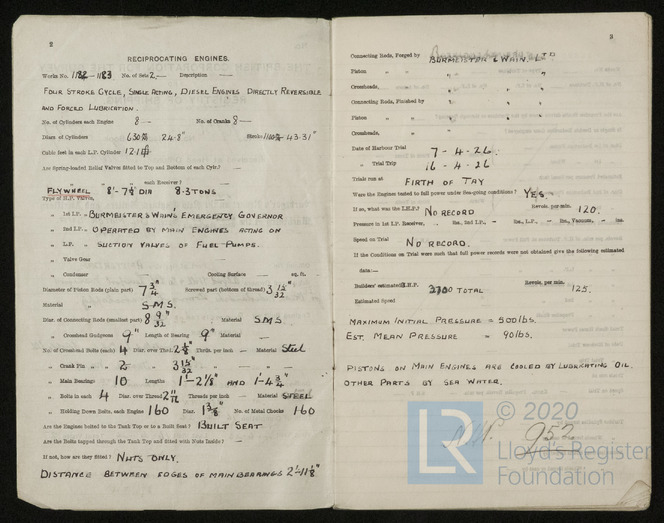 2
RECIPROCATING ENGINES.
Works No. 1182-1183 No. of Sets 2 Description
FOUR STROKE CYCLE, SINGLE ACTING, DIESEL ENGINES DIRECTLY REVERSIBLE
AND FORCED LUBRICATION.
No. of Cylinders each Engine 8 No. of Cranks 8
Diars. of Cylinders 630 24.8" Stroke 1100 43.31"
Cubic feet in each L.P. Cylinder 12.1
Are Spring-loaded Relief Valves fitted to Top and Bottom of each Cylr.?
each Receiver?
FLYWHEEL 8'-7¼" DIA 8.3 TONS
Type of H.P. Valves,
" 1st I.P. " BURMEISTER & WAIN'S EMERGENCY GOVERNOR
" 2nd I.P. " OPERATED BY MAIN ENGINES ACTING ON
" L.P. " SUCTION VALVES OF FUEL PUMPS.
" Valve Gear
" Condenser Cooling Surface sq. ft.
Diameter of Piston Rods (plain part) 7 3/4" Screwed part (bottom of thread) 3 15/32"
Material " S.M.S.
Diar. of Connecting Rods (smallest part) 8 9/32" Material S.M.S.
" Crosshead Gudgeons 9" Length of Bearing 9" Material
No. of Crosshead Bolts (each) 4 Diar. over Thrd. 2 1/8" Thrds. per inch Material STEEL
" Crank Pin " " 2 " 3 15/32" " "
" Main Bearings 10 Lengths 1'-2 1/8" AND 1'-4 3/4"
" Bolts in each 4 Diar. over Thread Threads per inch Material STEEL
" Holding Down Bolts, each Engine 160 Diar. 1 3/8" No. of Metal Chocks 160
Are the Engines bolted to the Tank Top or to a Built Seat? BUILT SEAT
Are the Bolts tapped through the Tank Top and fitted with Nuts Inside?
If not, how are they fitted? NUTS ONLY.
DISTANCE BETWEEN EDGES OF MAIN BEARINGS 2'-11 1/8"
3
Connecting Rods, Forged by BURMEISTER & WAIN. LTD
Piston " " "
Crossheads, " "
Connecting Rods, Finished by "
Piston " " "
Crossheads, " "
Date of Harbour Trial 7-4-26
" Trial Trip 16-4-26
Trials run at FIRTH OF TAY
Were the Engines tested to full power under Sea-going conditions? YES
If so, what was the I.H.P.? NO RECORD Revols. per min. 120.
Pressure in 1st I.P. Receiver, lbs., 2nd I.P., lbs., L.P., lbs., Vacuum, ins.
Speed on Trial NO RECORD.
If the Conditions on Trial were such that full power records were not obtained give the following estimated
data:—
Builders' estimated I.H.P. 3700 TOTAL Revols. per min. 125.
Estimated Speed
MAXIMUM INITIAL PRESSURE = 500 lbs.
EST. MEAN PRESSURE = 90 lbs.
PISTONS ON MAIN ENGINES ARE COOLED BY LUBRICATING OIL.
OTHER PARTS BY SEA WATER.
952
LR
© 2020
Lloyd's Register
Foundation